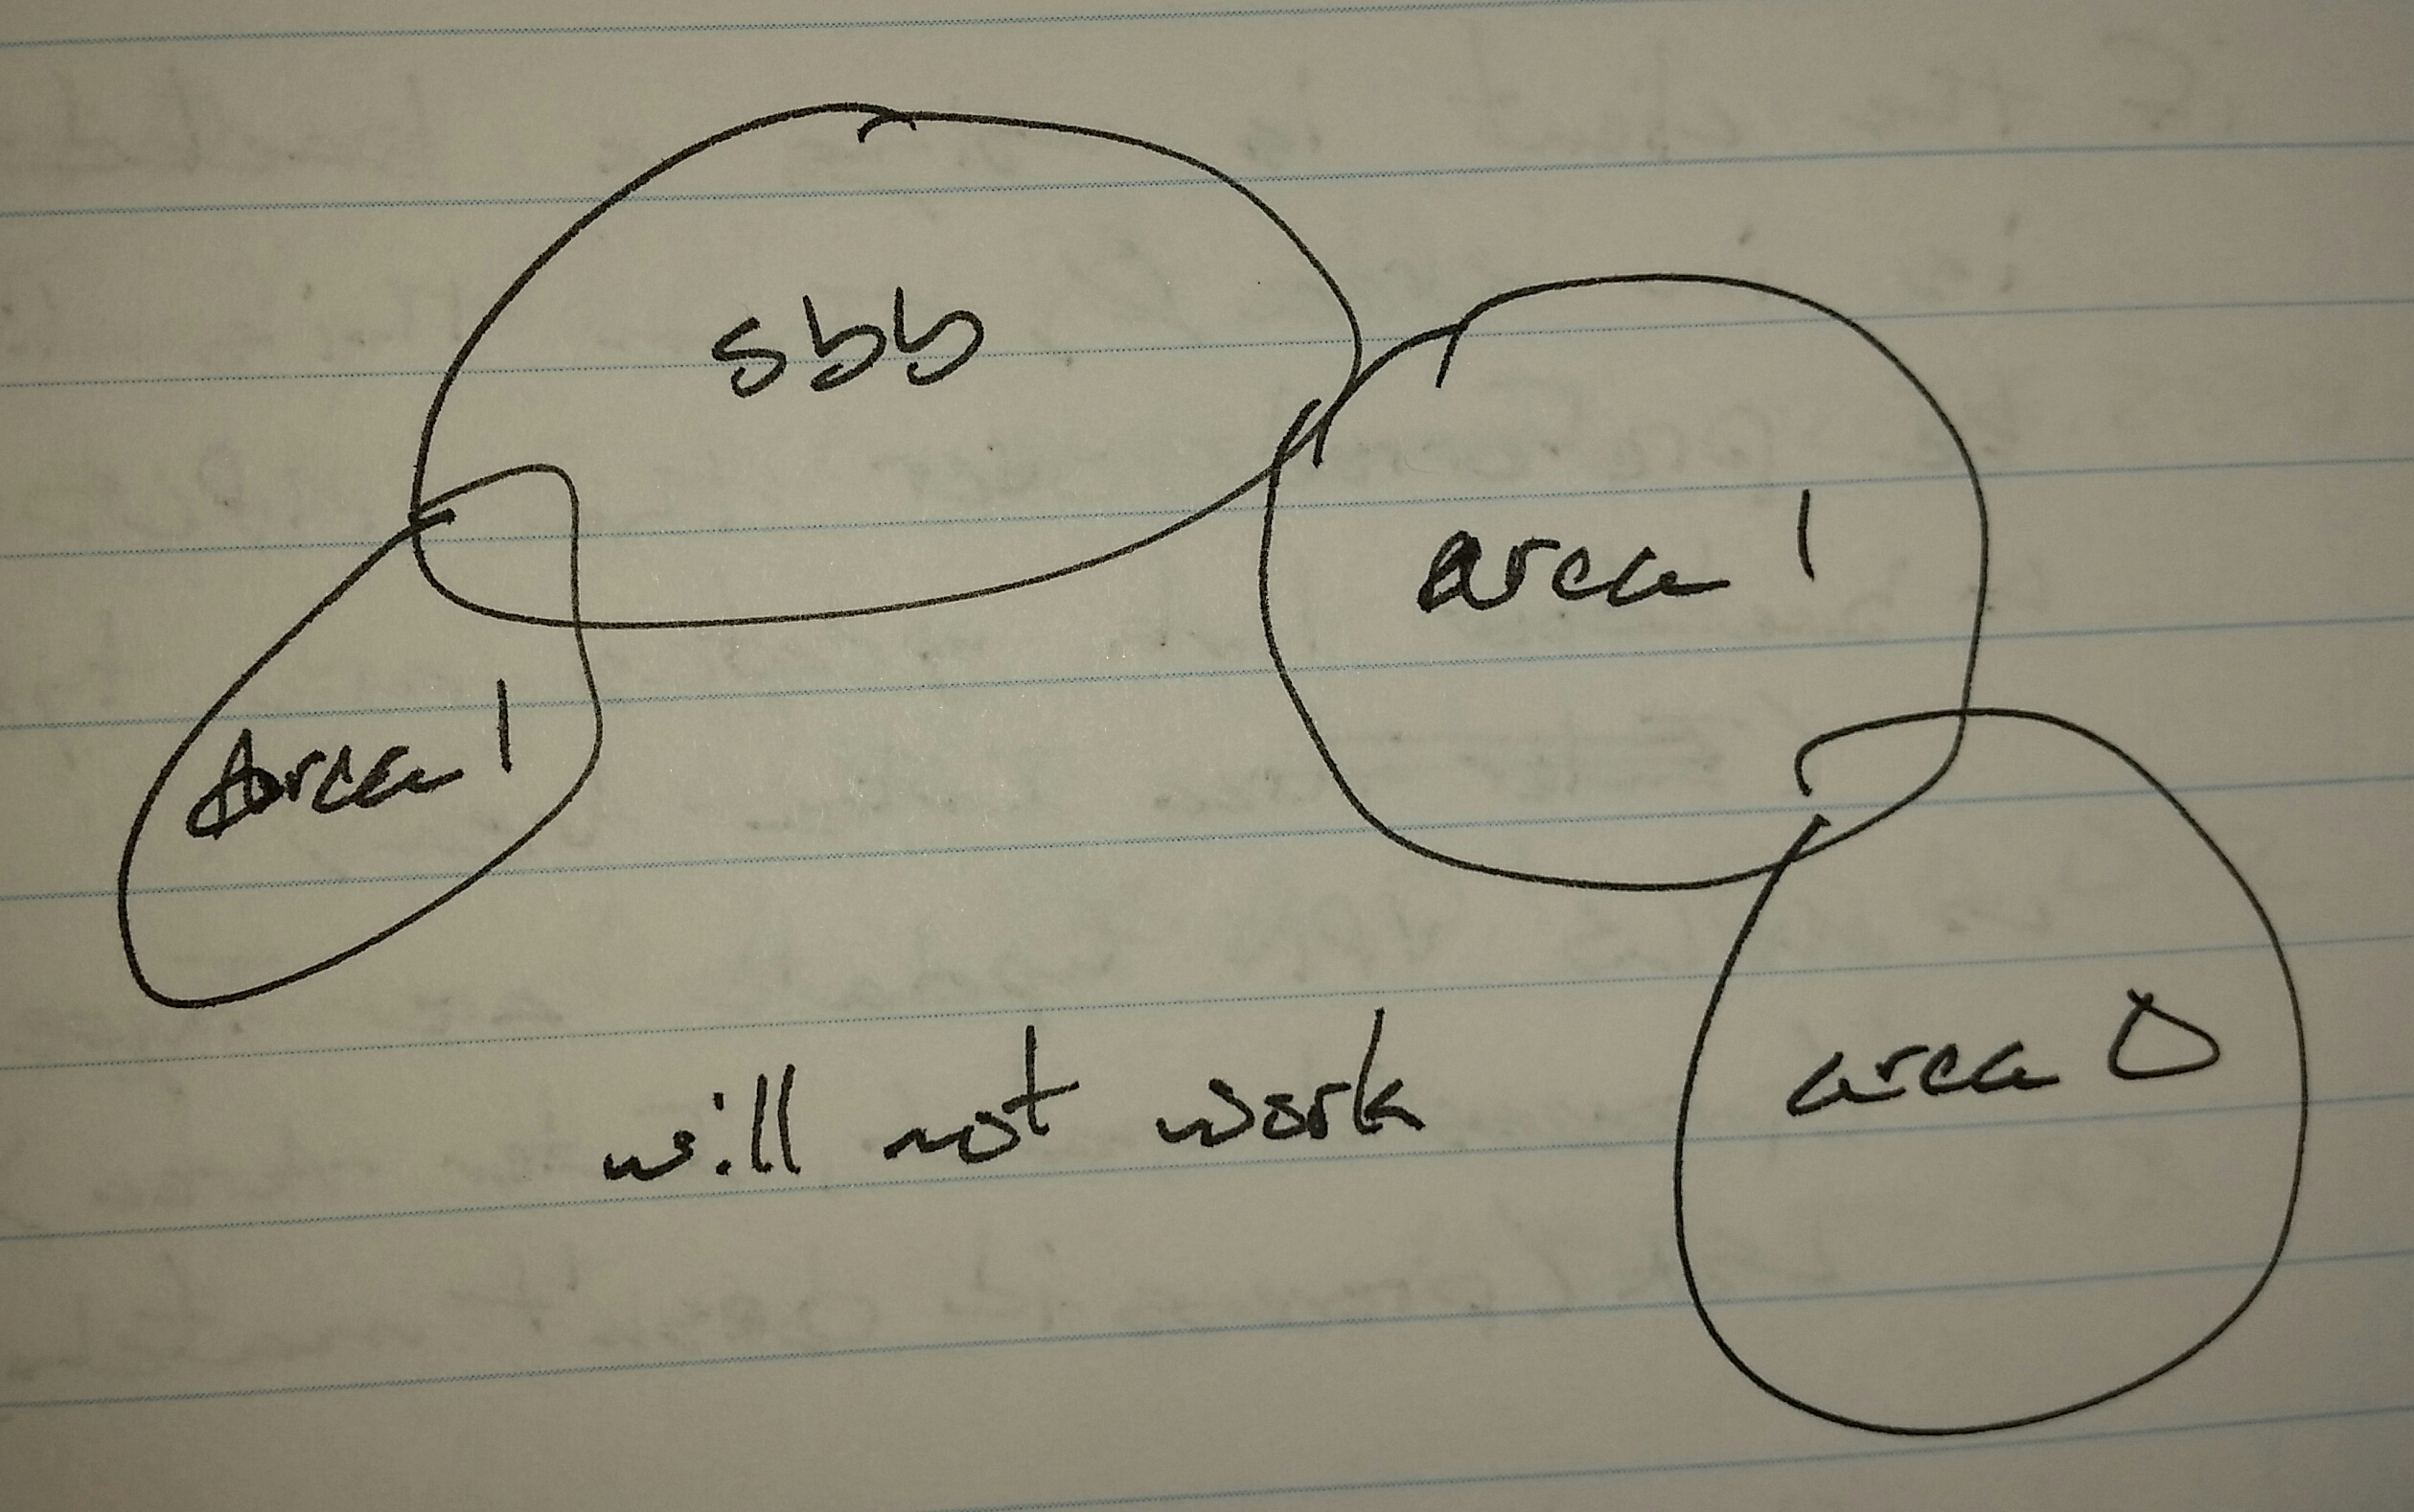 sbb
area 1
area 1
area 0
will not work